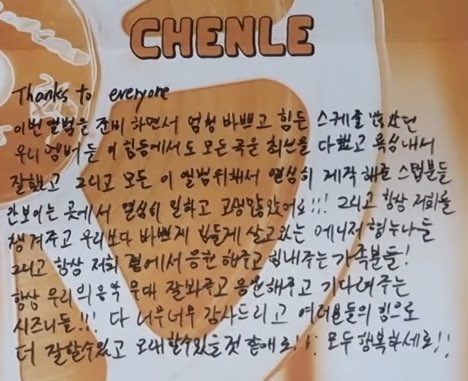 CHENLE
Thanks to everyone
이번 앨범을 준비하면서 엄청 바쁘고 힘든 스케줄 많았던
우리 멤버들 이 힘듬에서도 모든 곡을 최선을 다했고 욕심내서
잘했고 그리고 모든 이 앨범위해서 열심히 제작해준 스텝분들
안보이는 곳에서 열심히 일하고 고생많았어요!!! 그리고 항상 저희를
챙겨주고 우리보다 바쁘게 힘들게 살고있는 매니저 형누나들
그리고 항상 저희 곁에서 응원해주고 힘내주는 가족분들!
항상 우리의 음악 무대 잘봐주고 응원해주고 기다려주는
시즈니들!!! 다 너무너무 감사드리고 여러분들의 힘으로
더 잘할수있고 오래할수있을것 같애요!! 모두 행복하세요!!